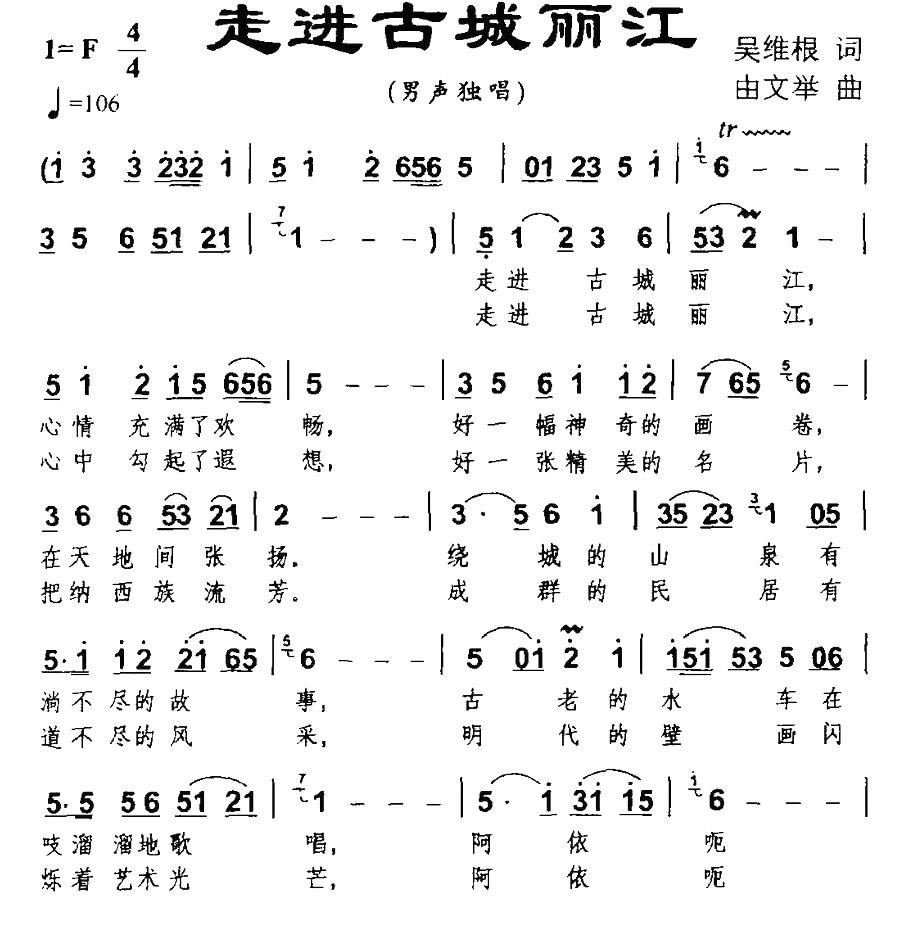 走进古城丽江
1=F 4/4
吴维根 词
♩=106
(男声独唱)
由文举 曲
tr
(1̇ 3̇ 3̇ 2̇3̇2̇ 1̇ | 5 1̇ 2̇ 656 5 | 01 23 5 1̇ | 1̇ 6 - - - |
3 5 6 51 21 | 7 1 - - - ) | 5̣ 1 2 3 6 | 53 2 1 - |
走进 古城丽 江,
走进 古城丽 江,
5 1̇ 2̇ 1̇5 656 | 5 - - - | 3 5 6 1̇ 1̇2̇ | 7 65 5 6 - |
心情 充满了欢 畅, 好一幅神 奇的画 卷,
心中 勾起了遐 想, 好一张精 美的名 片,
3 6 6 53 21 | 2 - - - | 3· 5 6 1̇ | 35 23 3 1 05 |
在天地间张 扬. 绕 城的山 泉有
把纳西族流 芳。 成 群的民 居有
5·1̇ 1̇2̇ 2̇1̇ 65 | 5 6 - - - | 5 01̇ 2̇ 1̇ | 1̇51̇ 53 5 06 |
淌不尽的故 事, 古 老的水 车在
道不尽的风 采, 明 代的壁 画闪
5·5 56 51 21 | 7 1 - - - | 5· 1̇ 3̇1̇ 1̇5 | 1̇ 6 - - - |
吱溜溜地歌 唱, 阿 依 呃
烁着艺术光 芒, 阿 依 呃